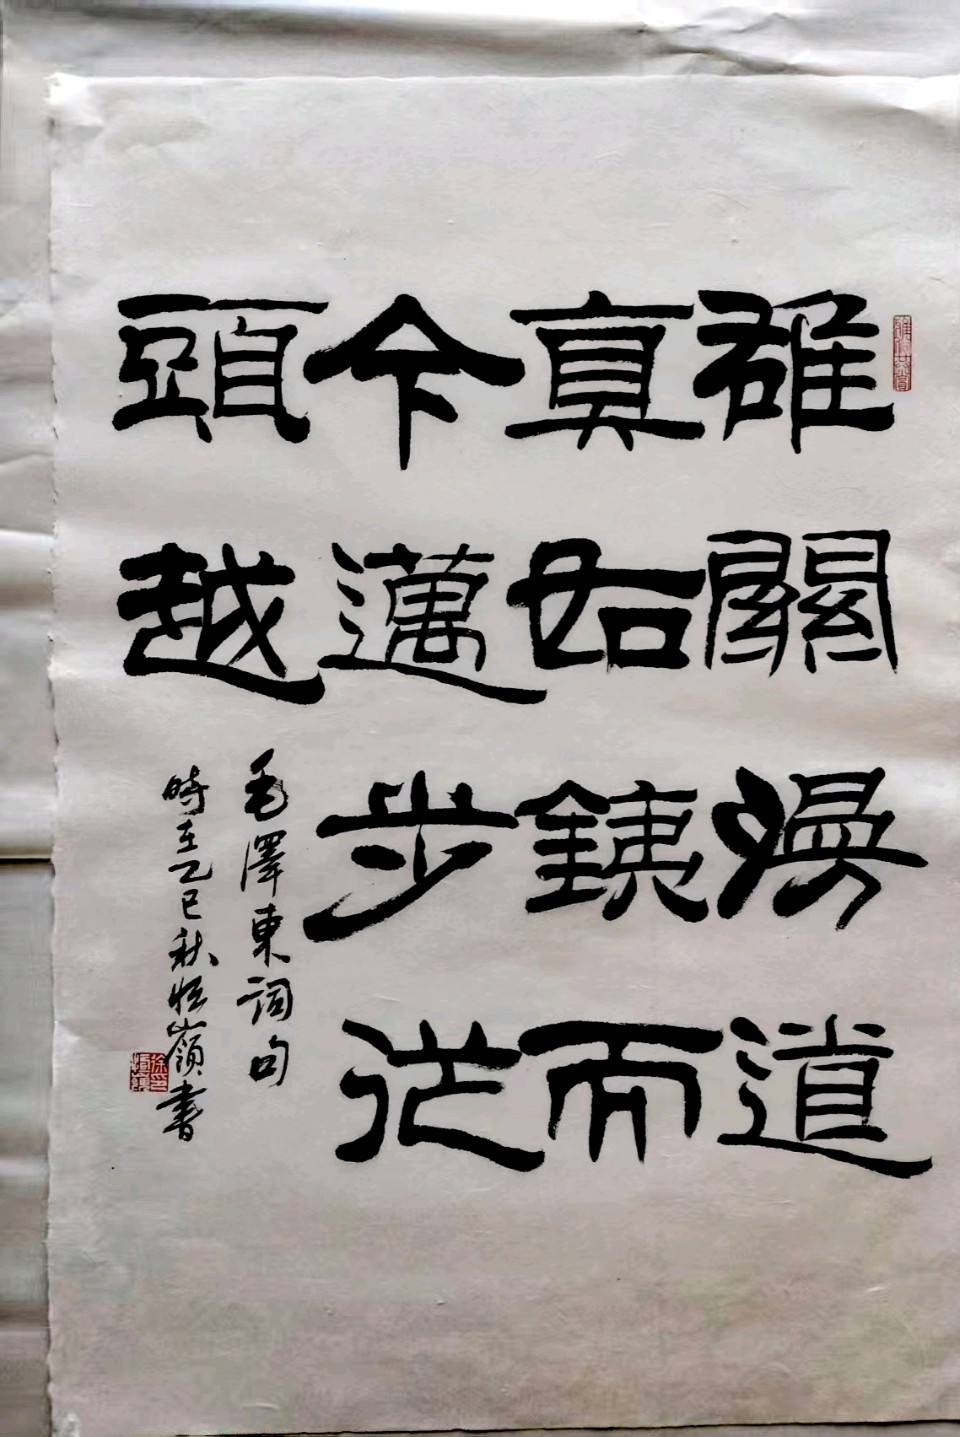 雄關漫道
真如銕而
今邁步從
頭越
毛澤東詞句
時在乙巳秋恒嶺書